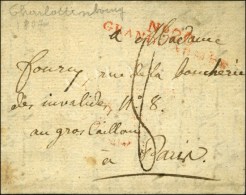 Charlottenburg
1807
N°
GRANDE ARMÉE
a Madame
fourcy rue de la boucherie
des invalides N° 8.
au gros Caillou
8
a Paris